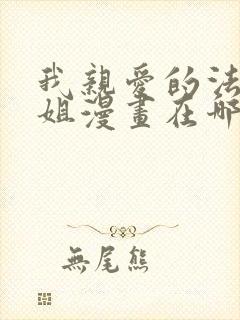 我親愛的法
姐漫畫在哪
無尾熊